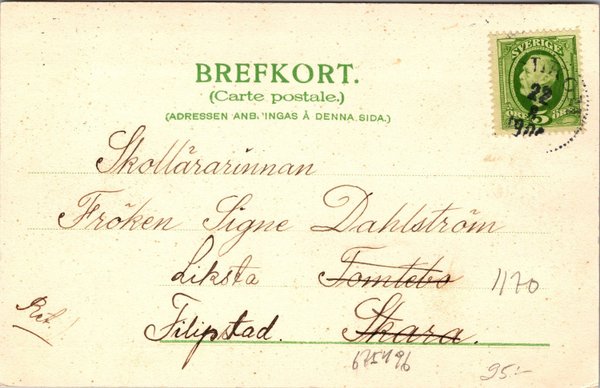 SVERIGE
22
BREFKORT.
(Carte postale.)
(ADRESSEN ANB. INGAS Å DENNA SIDA.)
Skollärarinnan
Fröken Signe Dahlström
Liksta Tomtebo 1170
Ret.
Filipstad. Skara.
675496
95:-